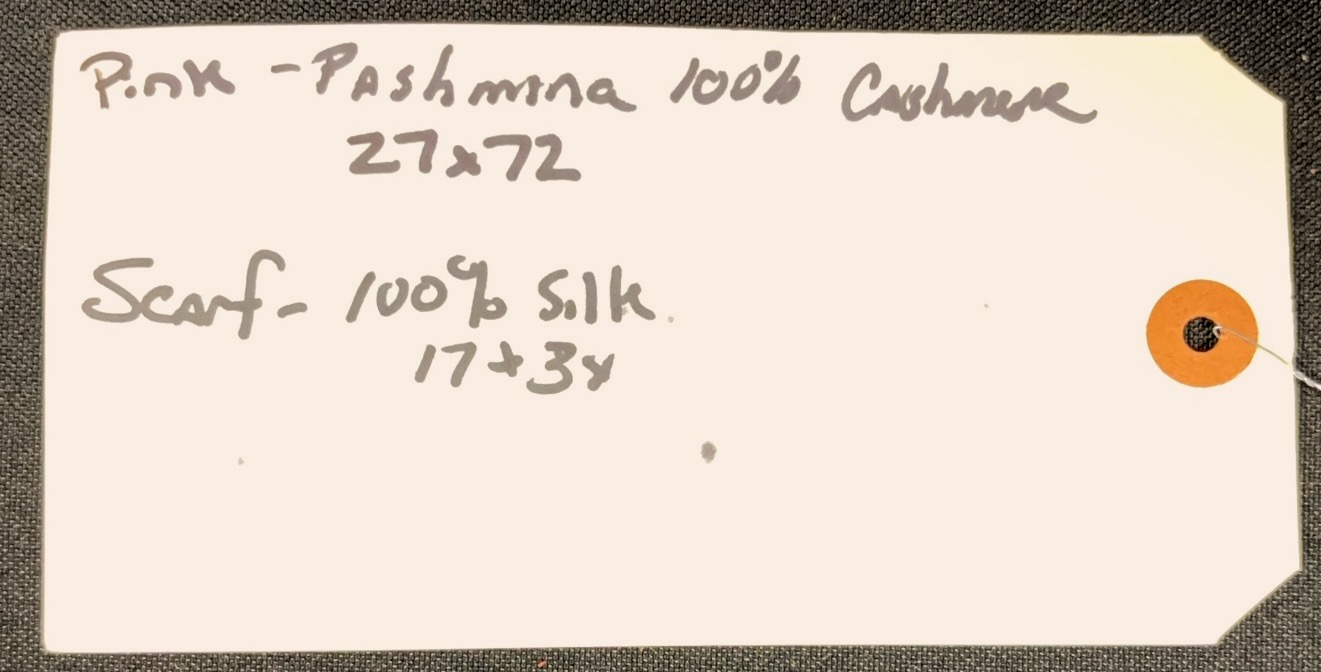 Pink - Pashmina 100% Cashmere
27x72
Scarf - 100% Silk
17x34